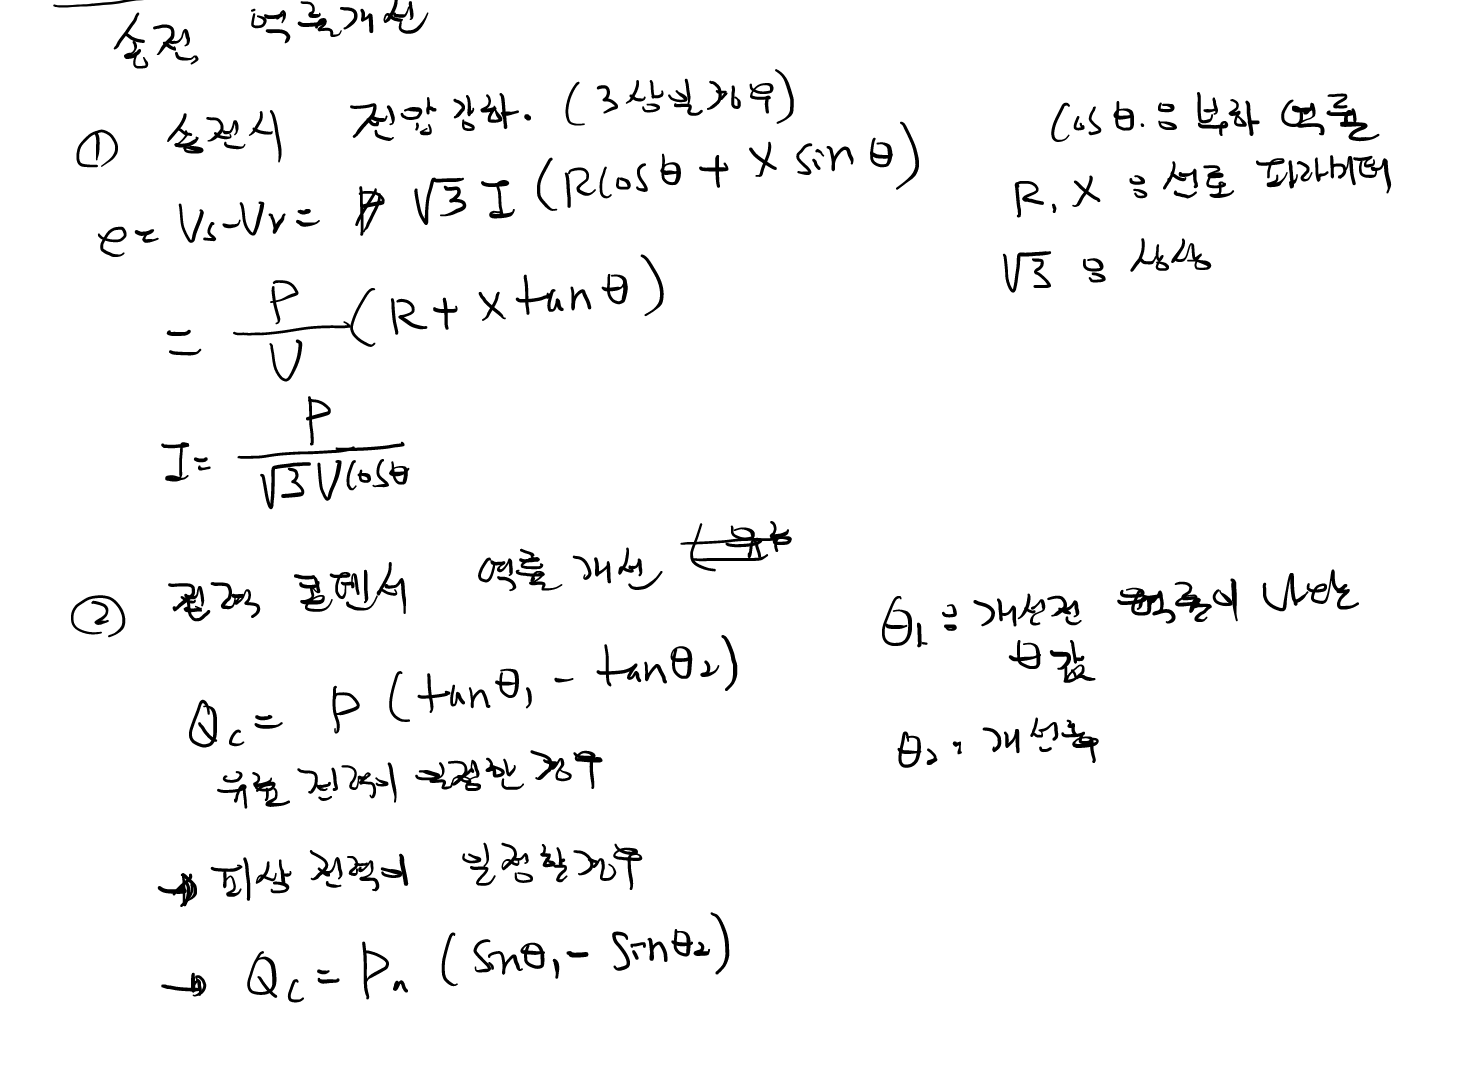 송전 역률개선
① 송전시 전압강하. (3상일 경우)
e = Vs-Vr = √3 I (Rcosθ + X sinθ)
= P/V (R + X tanθ)
I = P/√3Vcosθ
cosθ.은 부하 역률
R, X 은 선로 파라미터
√3 은
② 전력 콘덴서 역률 개선
Qc = P (tanθ₁ - tanθ₂)
유효 전력이 일정한 경우
→ 피상 전력이 일정할 경우
→ Qc = Pa (sinθ₁ - sinθ₂)
θ₁ : 개선전 역률이
θ값
θ₂ : 개선후